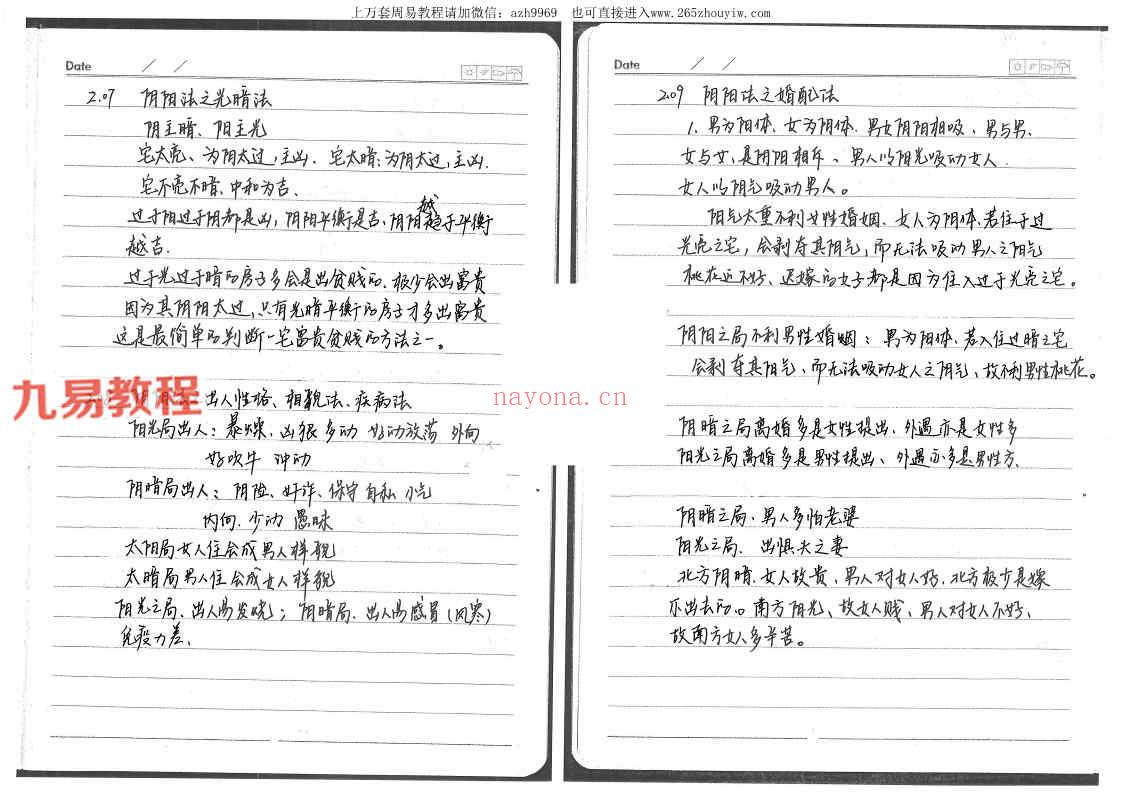 上万套周易教程请加微信：azh9969 也可直接进入www.265zhouyiw.com
Date / /
2.07 阴阳法之光暗法
阴主暗、阳主光
宅太亮、为阴太过，主凶、宅太暗：为阴太过，主凶.
宅不亮不暗、中和为吉、
过于阳过于阴都是凶，阴阳平衡是吉、阴阳越趋于平衡
越吉.
过于光过于暗的房子多会是出贫贱的、极少会出富贵
因为其阴阳太过，只有光暗平衡的房子才多出富贵
这是最简单的判断一宅富贵贫贱的方法之一。
九易教程
阴阳法之出人性格、相貌法、疾病法
阳光局出人：暴燥、凶狠 多动 好动放荡 外向
好吹牛 冲动
阴暗局出人：阴险、奸诈、保守 自私 小气
内向、少动 愚昧
太阳局女人住会成男人样貌
太暗局男人住会成女人样貌
阳光之局、出人易发烧；阴暗局、出人易感冒（风寒）
免疫力差、
nayona.cn
Date / /
2.09 阴阳法之婚配法
1、男为阳体、女为阴体、男女阴阳相吸、男与男、
女与女，是阴阳相斥、男人以阳光吸动女人.
女人以阴气吸动男人。
阳气太重不利女性婚姻、女人为阴体、若住于过
光亮之宅，会剥夺其阴气，而无法吸动男人之阳气
桃花运不好、迟嫁的女子都是因为住入过于光亮之宅。
阴阳之局不利男性婚姻：男为阳体、若入住过暗之宅
会剥夺其阳气、而无法吸动女人之阴气、故不利男性桃花。
阴暗之局离婚多是女性提出、外遇亦是女性多
阳光之局离婚多是男性提出、外遇亦多是男性方、
阴暗之局、男人多怕老婆
阳光之局、出惧夫之妻
北方阴暗、女人故贵，男人对女人好、北方极少是嫁
不出去的。南方阳光、故女人贱、男人对女人不好、
故南方女人多辛苦。